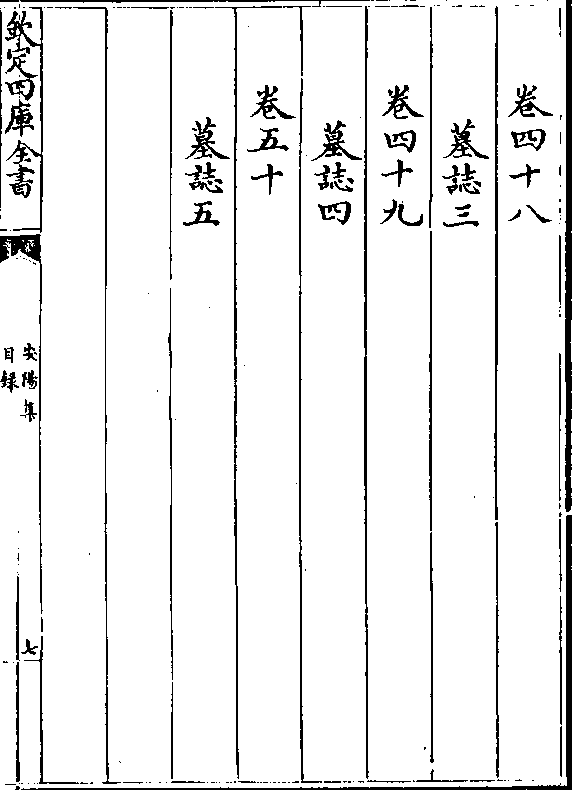 卷四十八
墓誌三
卷四十九
墓誌四
卷五十
墓誌五
欽定四庫全書
安陽集
目録
七